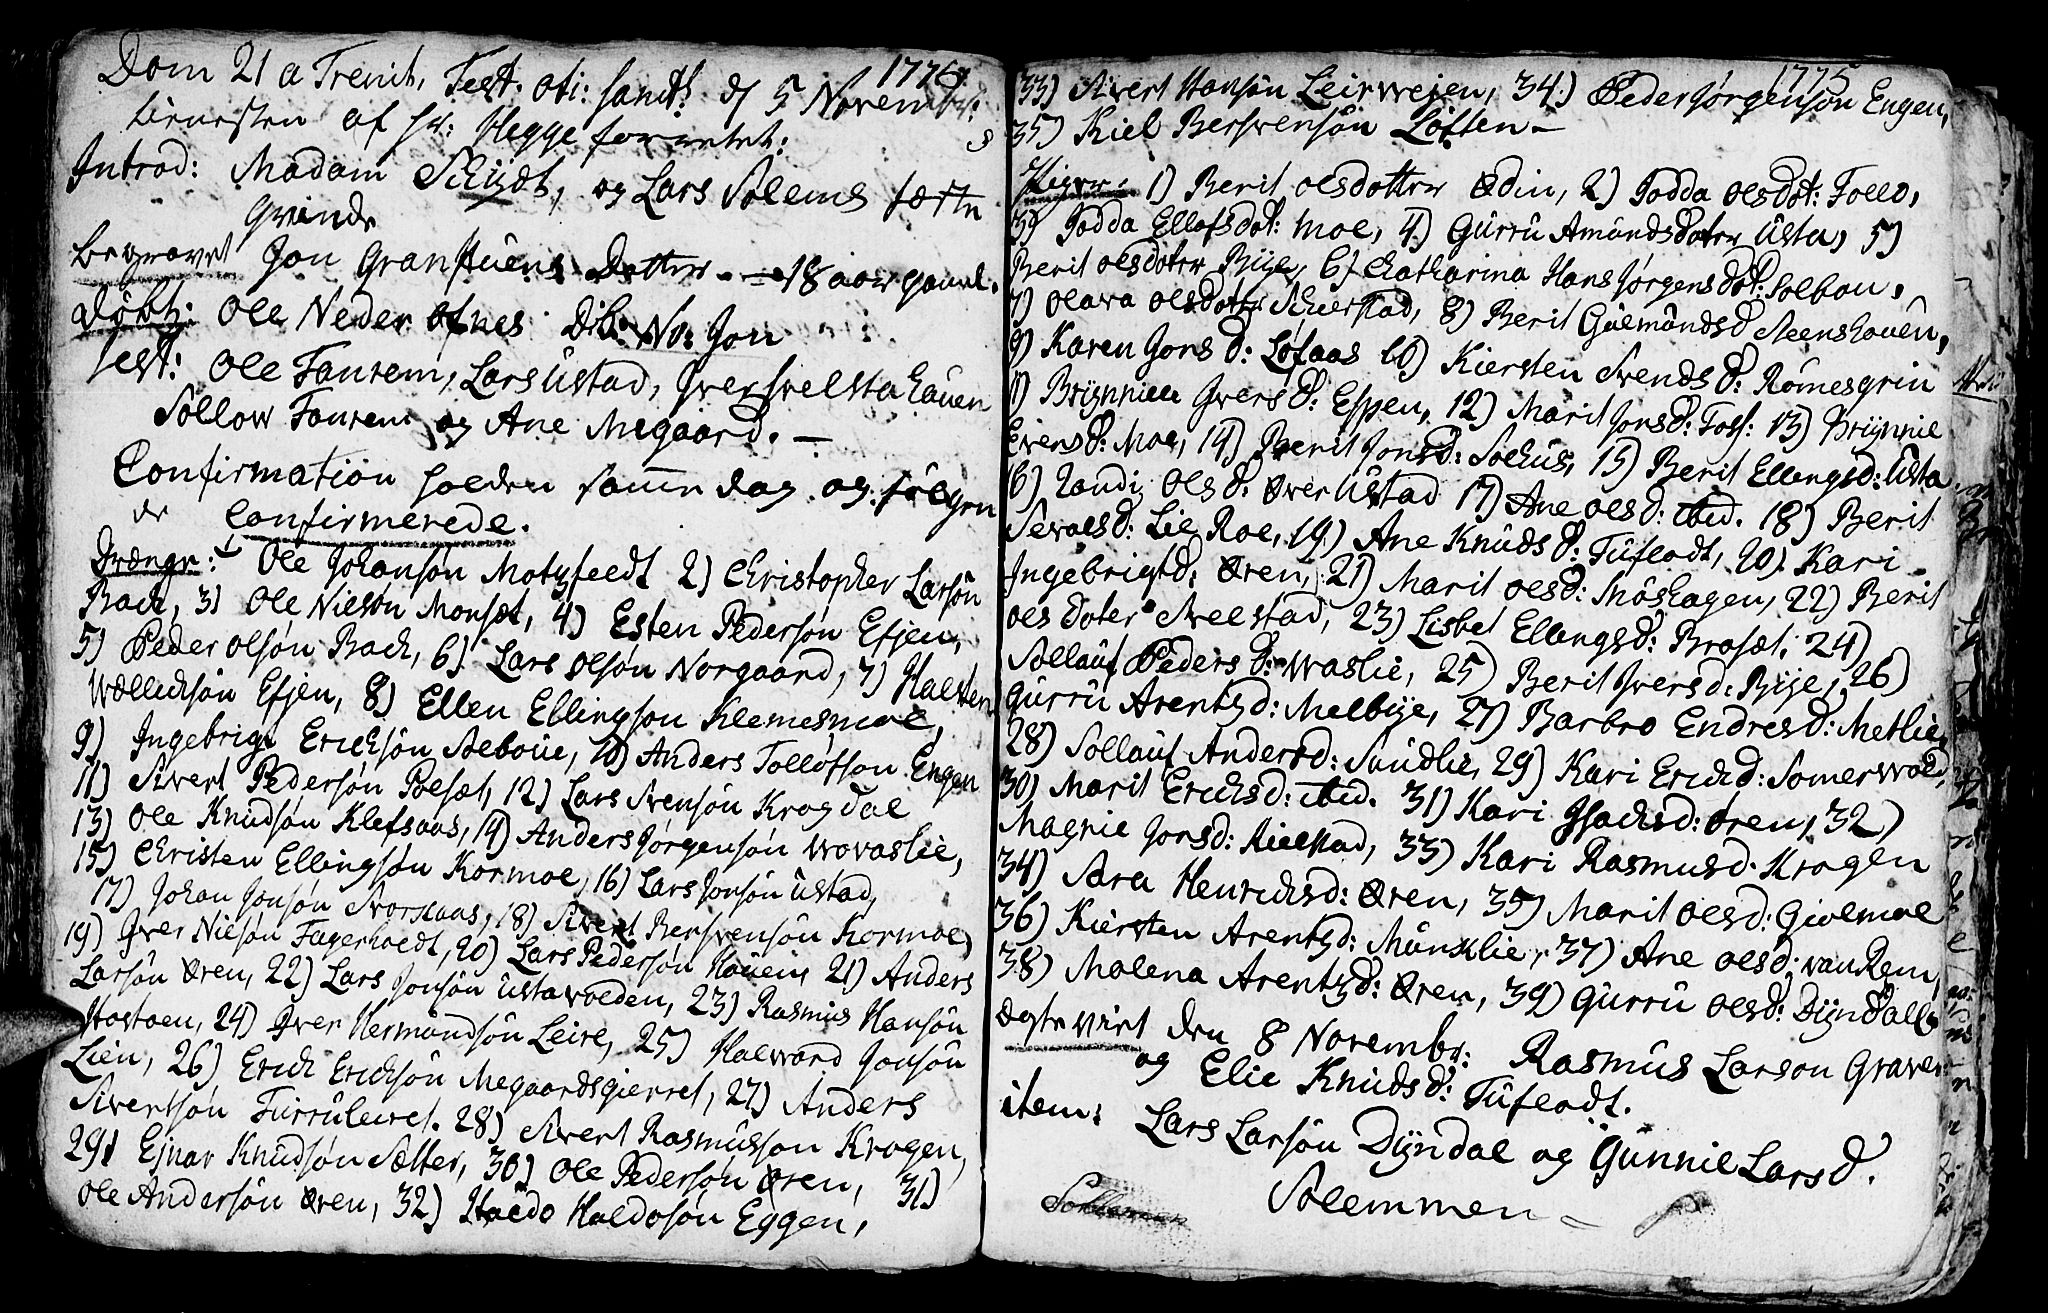 1775
Dom 21 a Trenit, Fest. oti: sanct: d 5 Novembr:
tienesten af hr: Hegge forrettet:
Introd: Madam Schijdt, og Lars Solems festn
Qvinde
begravet Jon Granstuens Dotter - 18 aar gaml.
döbt: Ole Neder Ofnes Dib: No: Jon
Test: Ole Fanrem, Lars Ustad, Iver hvelsta hauen
Sollow Fanrem og Ane Megaard. -
Confirmation holden samme dag og fölgen
de Confirmerede.
Drænge: Ole Johansön Motzfeedt 2) Christopher Larsön
Bach, 3) Ole Nielsön Monsæt, 4) Esten Pedersön Efjen,
5) Peder olsön Bach, 6) Lars olsön Norgaard, 7) Halsten
Wællichsön Efjen, 8) Ellen Ellingsön Klemesmoe,
9) Ingebrigt Erichsön Aeboue, 10) Anders Tollofson Engen
11) Sivert Pedersön Polsæt, 12) Lars Svensön Krogdal
13) Ole Knudsön Klefsaas, 14) Anders Jörgensön Wovaslie,
15) Christen Ellingsön Kormoe, 16) Lars Jonsön Ustad,
17) Johan Jonsön Svorkaas, 18) Sivert Bersvensön Kormoe,
19) Iver Nilsön Fagerholdt, 20) Lars Pedersön Houem, 21) Anders
Larsön Øren, 22) Lars Jonsön Ustawolden, 23) Rasmus Hansön
Hostoen, 24) Iver Hermundsön Leire, 25) Halword Jonsön
Lien, 26) Erich Erichsön Megaardsgierret, 27) Anders
Sivertsön Furruleiret. 28) Sivert Rasmusson Krogen,
29) Ejnar Knudsön Sætter, 30) Ole Pedersön Øren, 31)
Ole Andersön Øren, 32) Haldo Haldosön Eggen,
1775
33) Sivert Hansön Leirweien, 34) Peder Jörgensön Engen,
35) Kiel Bersvensön Löften -
Piger: 1) Berit olsdotter Ødin, 2) Todda olsdot: Follo,
3) Todda Ellofsdot: Moe, 4) Gurru Amundsdoter Usta, 5)
Berit olsdoter Bije, 6) Chatharina Hans Jörgens dot: Solbou,
7) Olava olsdoter Skierstad, 8) Berit Gulmundsd Steenshouen,
9) Karen Jonsd: Löfaas 10) Kiersten Svendsd: Romesgrin
11) Brynnild Ivers d: Espen, 12) Marit Jonsd: Foss: 13) Brynnil
Eversd: Moe, 14) Berit Jonsd: Solhus, 15) Berit Ellingsd: Usta
16) Randi Olsd: Over Ustad 17) Ane olsd: ibid. 18) Berit
Sevolsd: Lie Roe, 19) Ane Knudsd: Tuflodt, 20) Kari
Ingebrigtd: Øren, 21) Marit olsd: Möshagen, 22) Berit
ols doter Meelstad, 23) Lisbet Ellingsd: Brasæt. 24)
Sollauf Peders d: Waslie, 25) Berit Iversd: Bije, 26)
Gurru Arentzd: Melbije, 27) Barbro Endresd: Metlie,
28) Sollauf Andersd: Sundlie, 29) Kari Erichd: Somerwold,
30) Marit Erichsd: ibid. 31) Kari Isachsd: Øren, 32)
Magnie Jonsd: Kielstad, 33) Kari Rasmusd: Krogen
34) Sara Henrichsd: Øren, 35) Marit olsd: Gioelmoe
36) Kiersten Arentzd: Munklie, 37) Ane olsd: van Rem,
38) Malena Arentzd: Øren, 39) Gurru olsd: Dijndall
Egte viet den 8 Novembr: Rasmus Larson Graver
og Elie Knudsd: Tuflodt.
item: Lars Larsön Dijndal og Gunnil Larsd.
Solemmen -